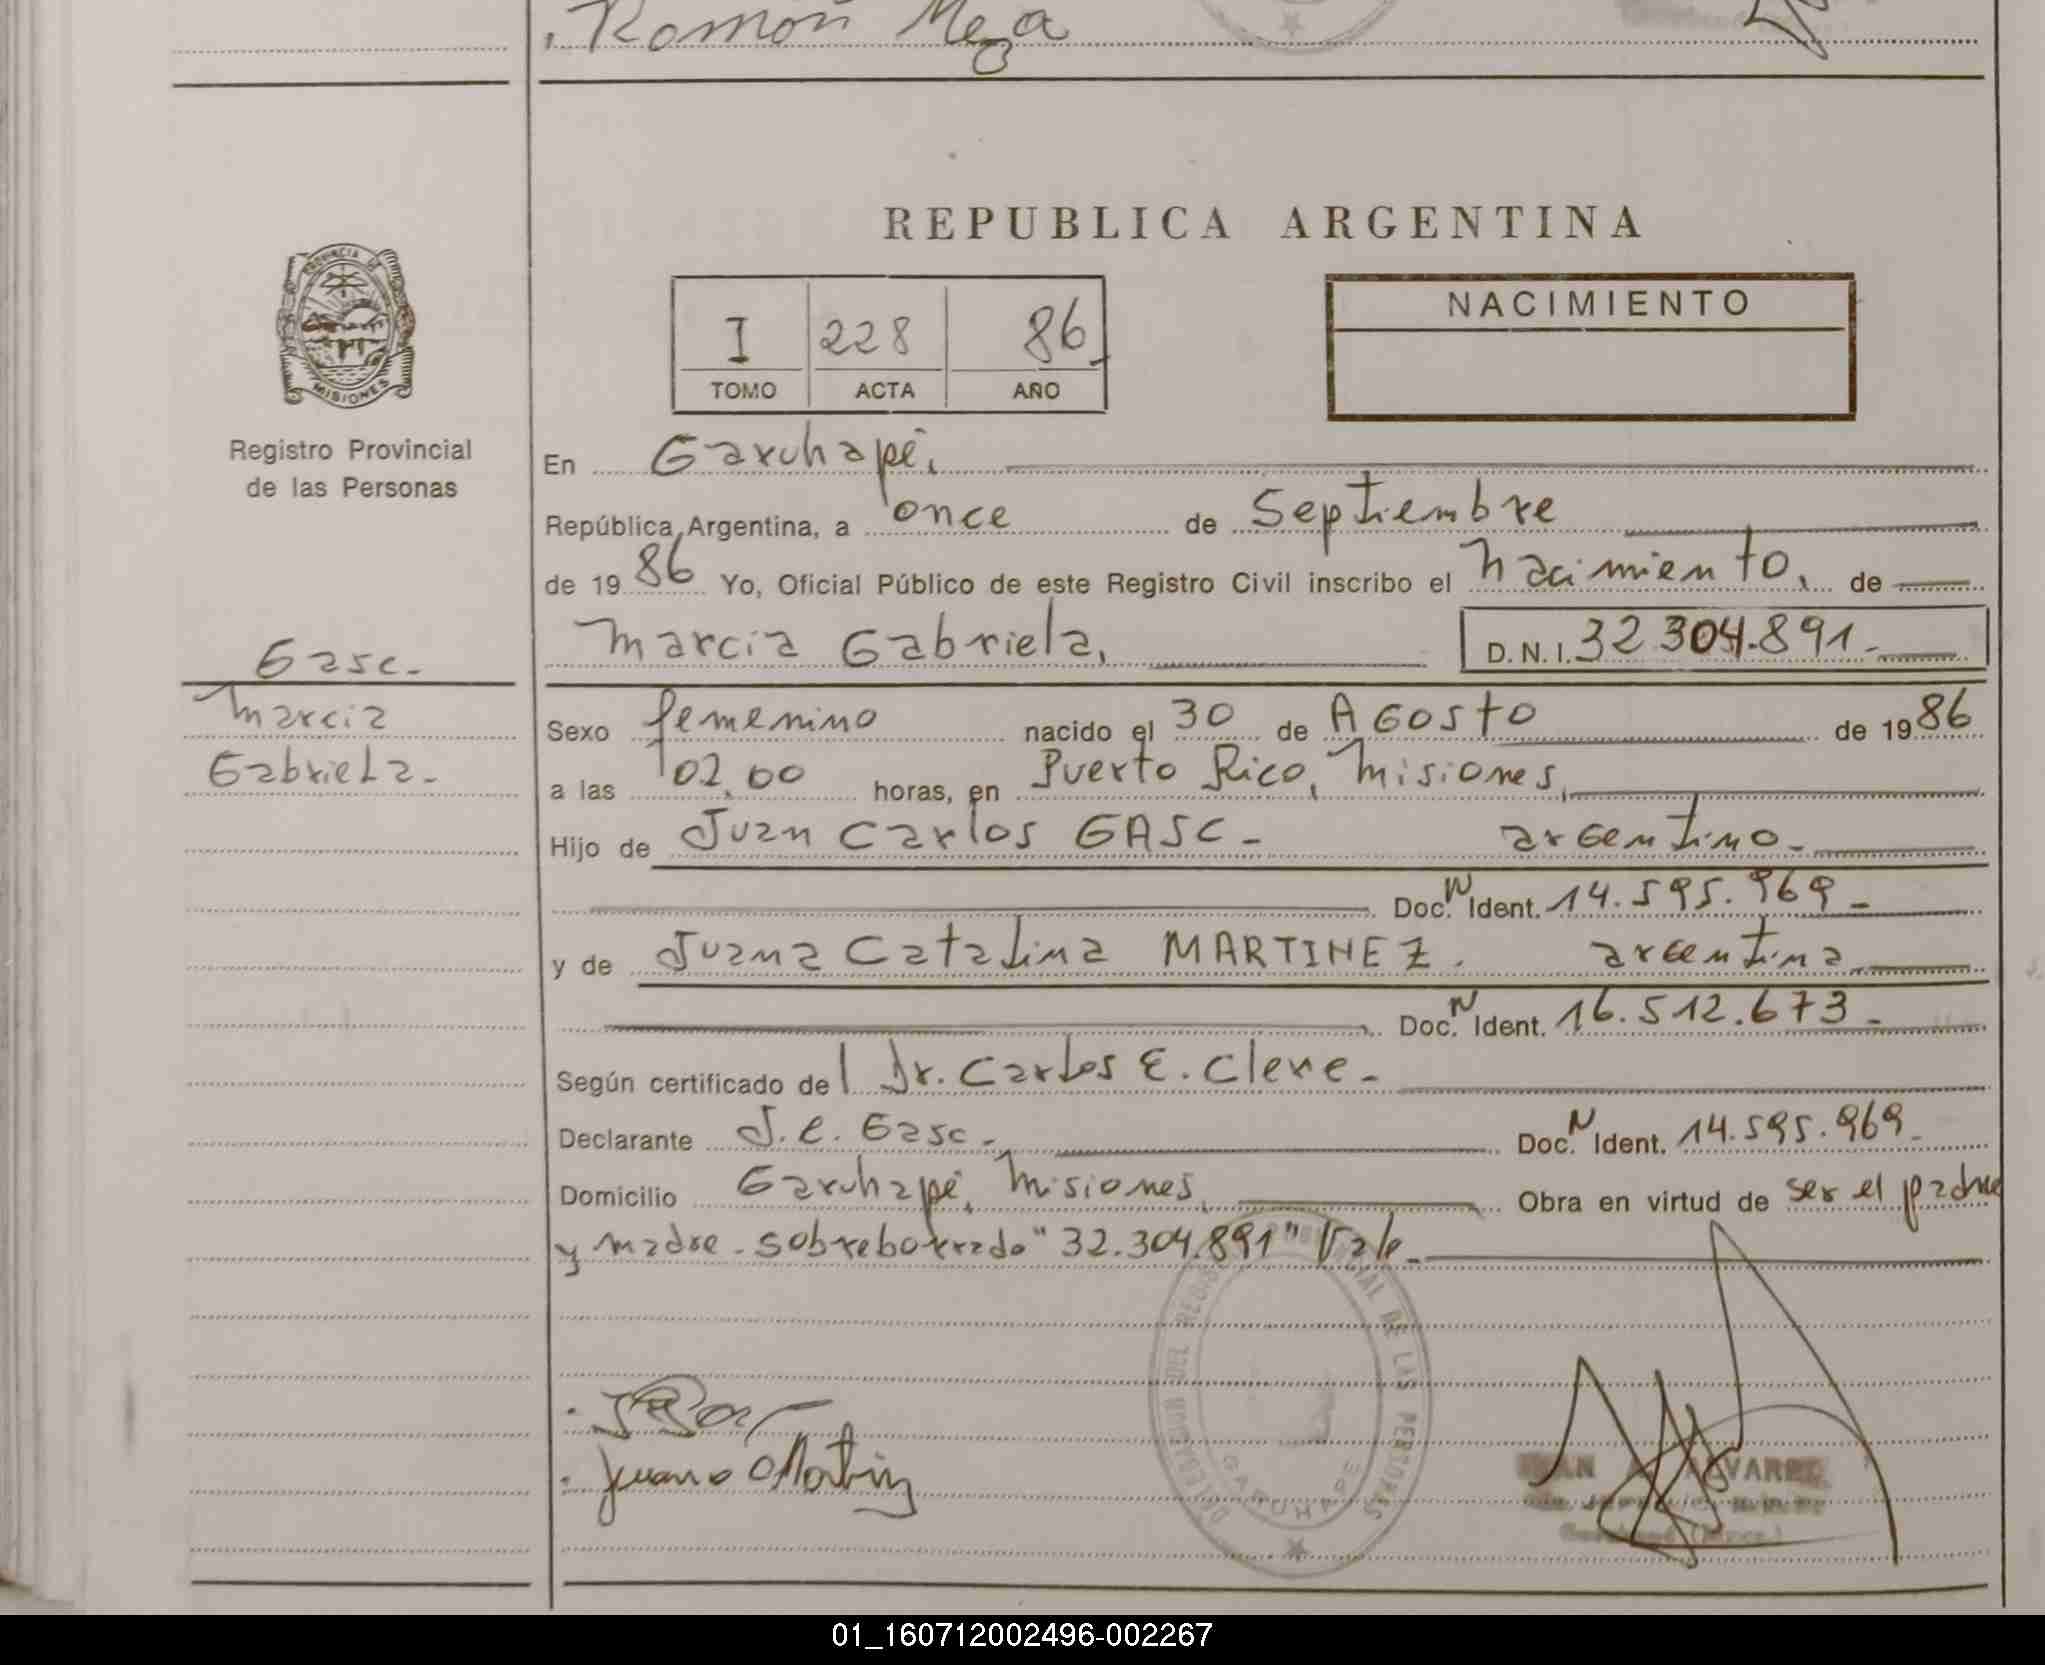 Ramón Meza
REPUBLICA ARGENTINA
PROVINCIA DE
MISIONES
Registro Provincial
de las Personas
I 228 86
TOMO ACTA AÑO
NACIMIENTO
En Garuhapé,
República Argentina, a once de Septiembre
de 19 86 Yo, Oficial Público de este Registro Civil inscribo el nacimiento, de
Marcia Gabriela, D.N.I. 32.304.891.-
Gasc.-
Marcia
Gabriela.-
Sexo femenino nacido el 30 de Agosto de 19 86
a las 02,00 horas, en Puerto Rico, Misiones,
Hijo de Juan Carlos GASC.- argentino.-
Doc. N Ident. 14.595.969.-
y de Juana Catalina MARTINEZ. argentina
Doc. N Ident. 16.512.673.-
Según certificado del Dr. Carlos E. Cleve.-
Declarante J.C. Gasc.- Doc. N Ident. 14.595.969.-
Domicilio Garuhapé, Misiones, Obra en virtud de ser el padre
y madre.- sobreborrado "32.304.891" Vale.-
DELEGACION DEL REGISTRO PROVINCIAL DE LAS PERSONAS
GARUHAPE
Juana Martinz
ALVAREZ
01_160712002496-002267